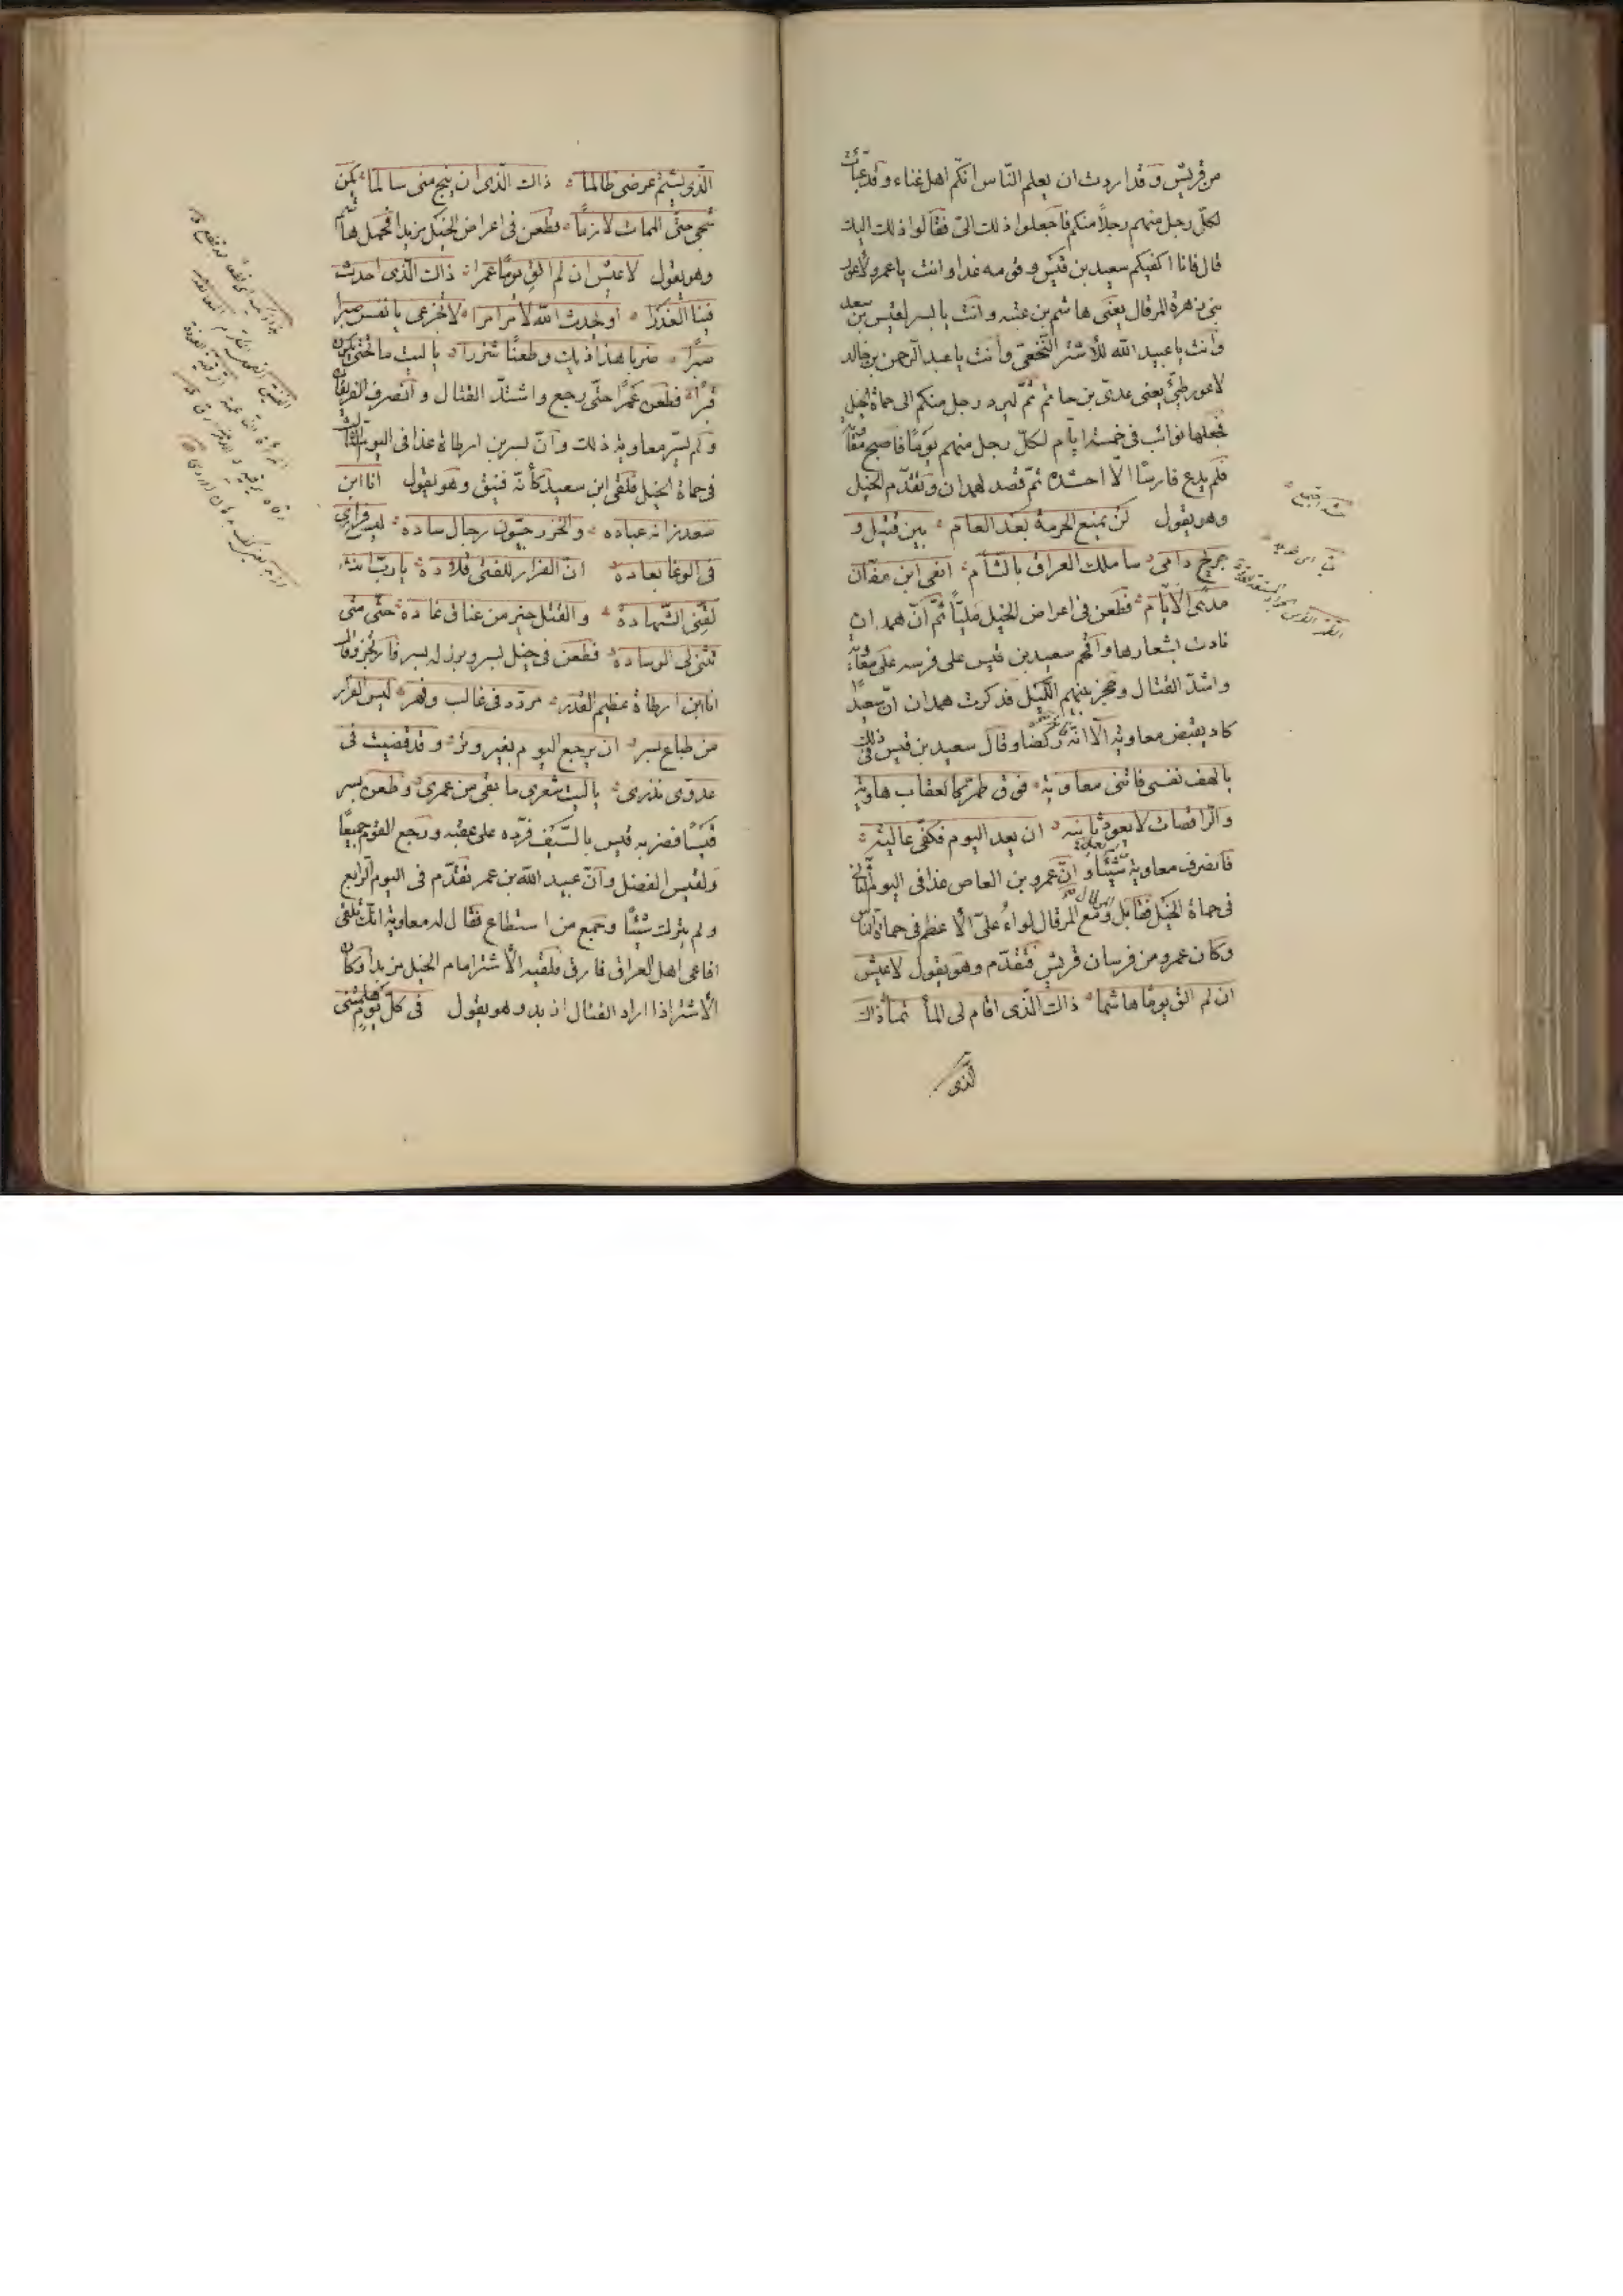 من قريش وقد اردت ان يعلم الناس انكم اهل غناء وقد عبّأت
لكلّ رجل منهم رجلاً منكم فاجعلوا ذلك الىّ فقالوا ذلك اليك
قال فانا اكفيكم سعيد بن قيس وقومه غدا وانت يا عمرو لاعور
بنى زهرة المرقال يعنى هاشم بن عتبه وانت يا بسر لقيس بن سعد
وانت يا عبيد الله للأشتر النّخعىّ وانت يا عبد الرحمن بن خالد
لاعور طيّئ يعنى عدىّ بن حاتم ثمّ ليرد رجل منكم الى حماة الخيل
فجعلها نوائب فى خمسة ايّام لكلّ رجل منهم يومًا فاصبح معاوية
فلم يدع فارسًا الّا احشده ثمّ قصد لهمدان وتقدّم الخيل
وهو يقول لن يمنع الحرمة بعد العام بين قتيل و
جريح دامى سا ملك العراق بالشأم انعى ابن عفّان
مدى الأيّام فطعن فى اعراض الخيل مليًّا ثمّ انّ همدان
نادت بشعارها واقحم سعيد بن قيس على فرسه على معاوية
واشتدّ القتال وحجز بينهم اللّيل فذكرت همدان انّ سعيدًا
كاد يقبض معاوية الّا انّه ركضا وقال سعيد بن قيس فى ذلك
يا لهف نفسى فاتنى معاوية فوق طمرّ كالعقاب هاوية
والرّاقصات لا يعود ثانيه ان يعد اليوم فكفّى عاليه
فانصرف معاوية شيئًا وانّ عمرو بن العاص غدا فى اليوم الثّانى
فى حماة الخيل فقابل ومع المرقال لواء علىّ الأعظم فى حماة النّاس
وكان عمرو من فرسان قريش فتقدّم وهو يقول لا عيش
ان لم الق يومًا هاشما ذاك الّذى اقام لى المأتما ذاك
الّذى
الّذى يشتم عرضى ظالما ذاك الّذى ان ينج منى سالما يكن
شجى حتّى الممات لازما فطعن فى اعراض الخيل مزبدا فحمل هاشم
وهو يقول لا عيش ان لم الق يومًا عمرا ذاك الّذى احدث
فينا الغدرا او يحدث الله لأمر امرا لا تجزعى يا نفس صبرا
صبرًا ضربا هذا ذيك وطعنًا شزرا يا ليت ما تحتى يكون
قبرا فطعن عمرًا حتّى رجع واشتدّ القتال وانصرف الفريقان
ولم يسرّ معاوية ذلك وانّ بسر بن ارطاة غدا فى اليوم الثّالث
فى حماة الخيل فلقى ابن سعيد كأنّه فنيق وهو يقول انا ابن
سعد زانه عباده والخزرجيّون رجال ساده ليس فرارى
فى الوغا بعاده انّ الفرار للفتى قلادة يا ربّ انت
لقّنى الشّهادة والقتل خير من عناق غادة حتّى متى
تثنى لى الوسادة فطعن فى خيل بسر وبرز له بسر فارتجز وقال
انا ابن ارطاة عظيم القدر مردّد فى غالب وفهر ليس الفرار
من طباع بسر ان يرجع اليوم بغير وتر وقد قضيت فى
عدوّى نذرى يا ليت شعرى ما بقى من عمرى وطعن بسر
قيسًا فضربه قيس بالسّيف فردّه على عقبه ورجع القوم جميعًا
ولقيس الفضل وانّ عبيد الله بن عمر تقدّم فى اليوم الرّابع
ولم يترك شيئًا وجمع من استطاع فقال له معاوية انّك تلقى
افاعى اهل العراق فارفق فلقيه الأشتر امام الخيل مزبدا وكان
الأشتر اذا اراد القتال ازبد وهو يقول فى كلّ يوم